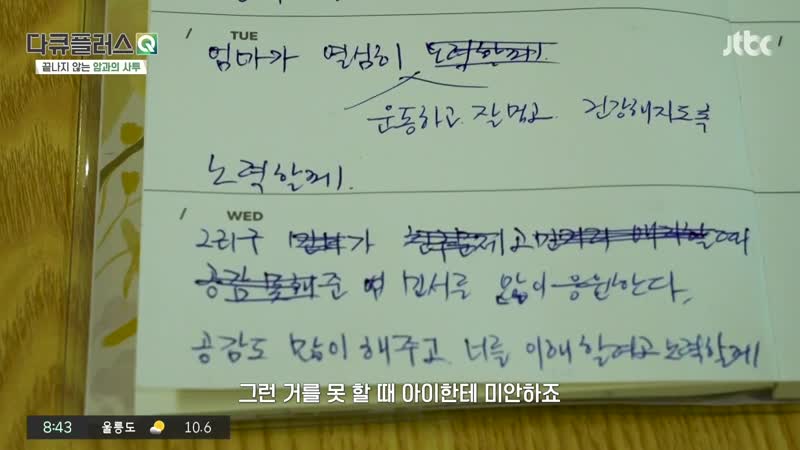 다큐플러스Q
끝나지 않는 암과의 사투
jtbc
/ TUE
엄마가 열심히 노력할께.
운동하고 잘먹고 건강해지도록
노력할께.
/ WED
그리구
공감 못해준 민서를 많이 응원한다.
공감도 많이 해주고 너를 이해할려고 노력할께
그런 거를 못 할 때 아이한테 미안하죠
8:43 울릉도 10.6